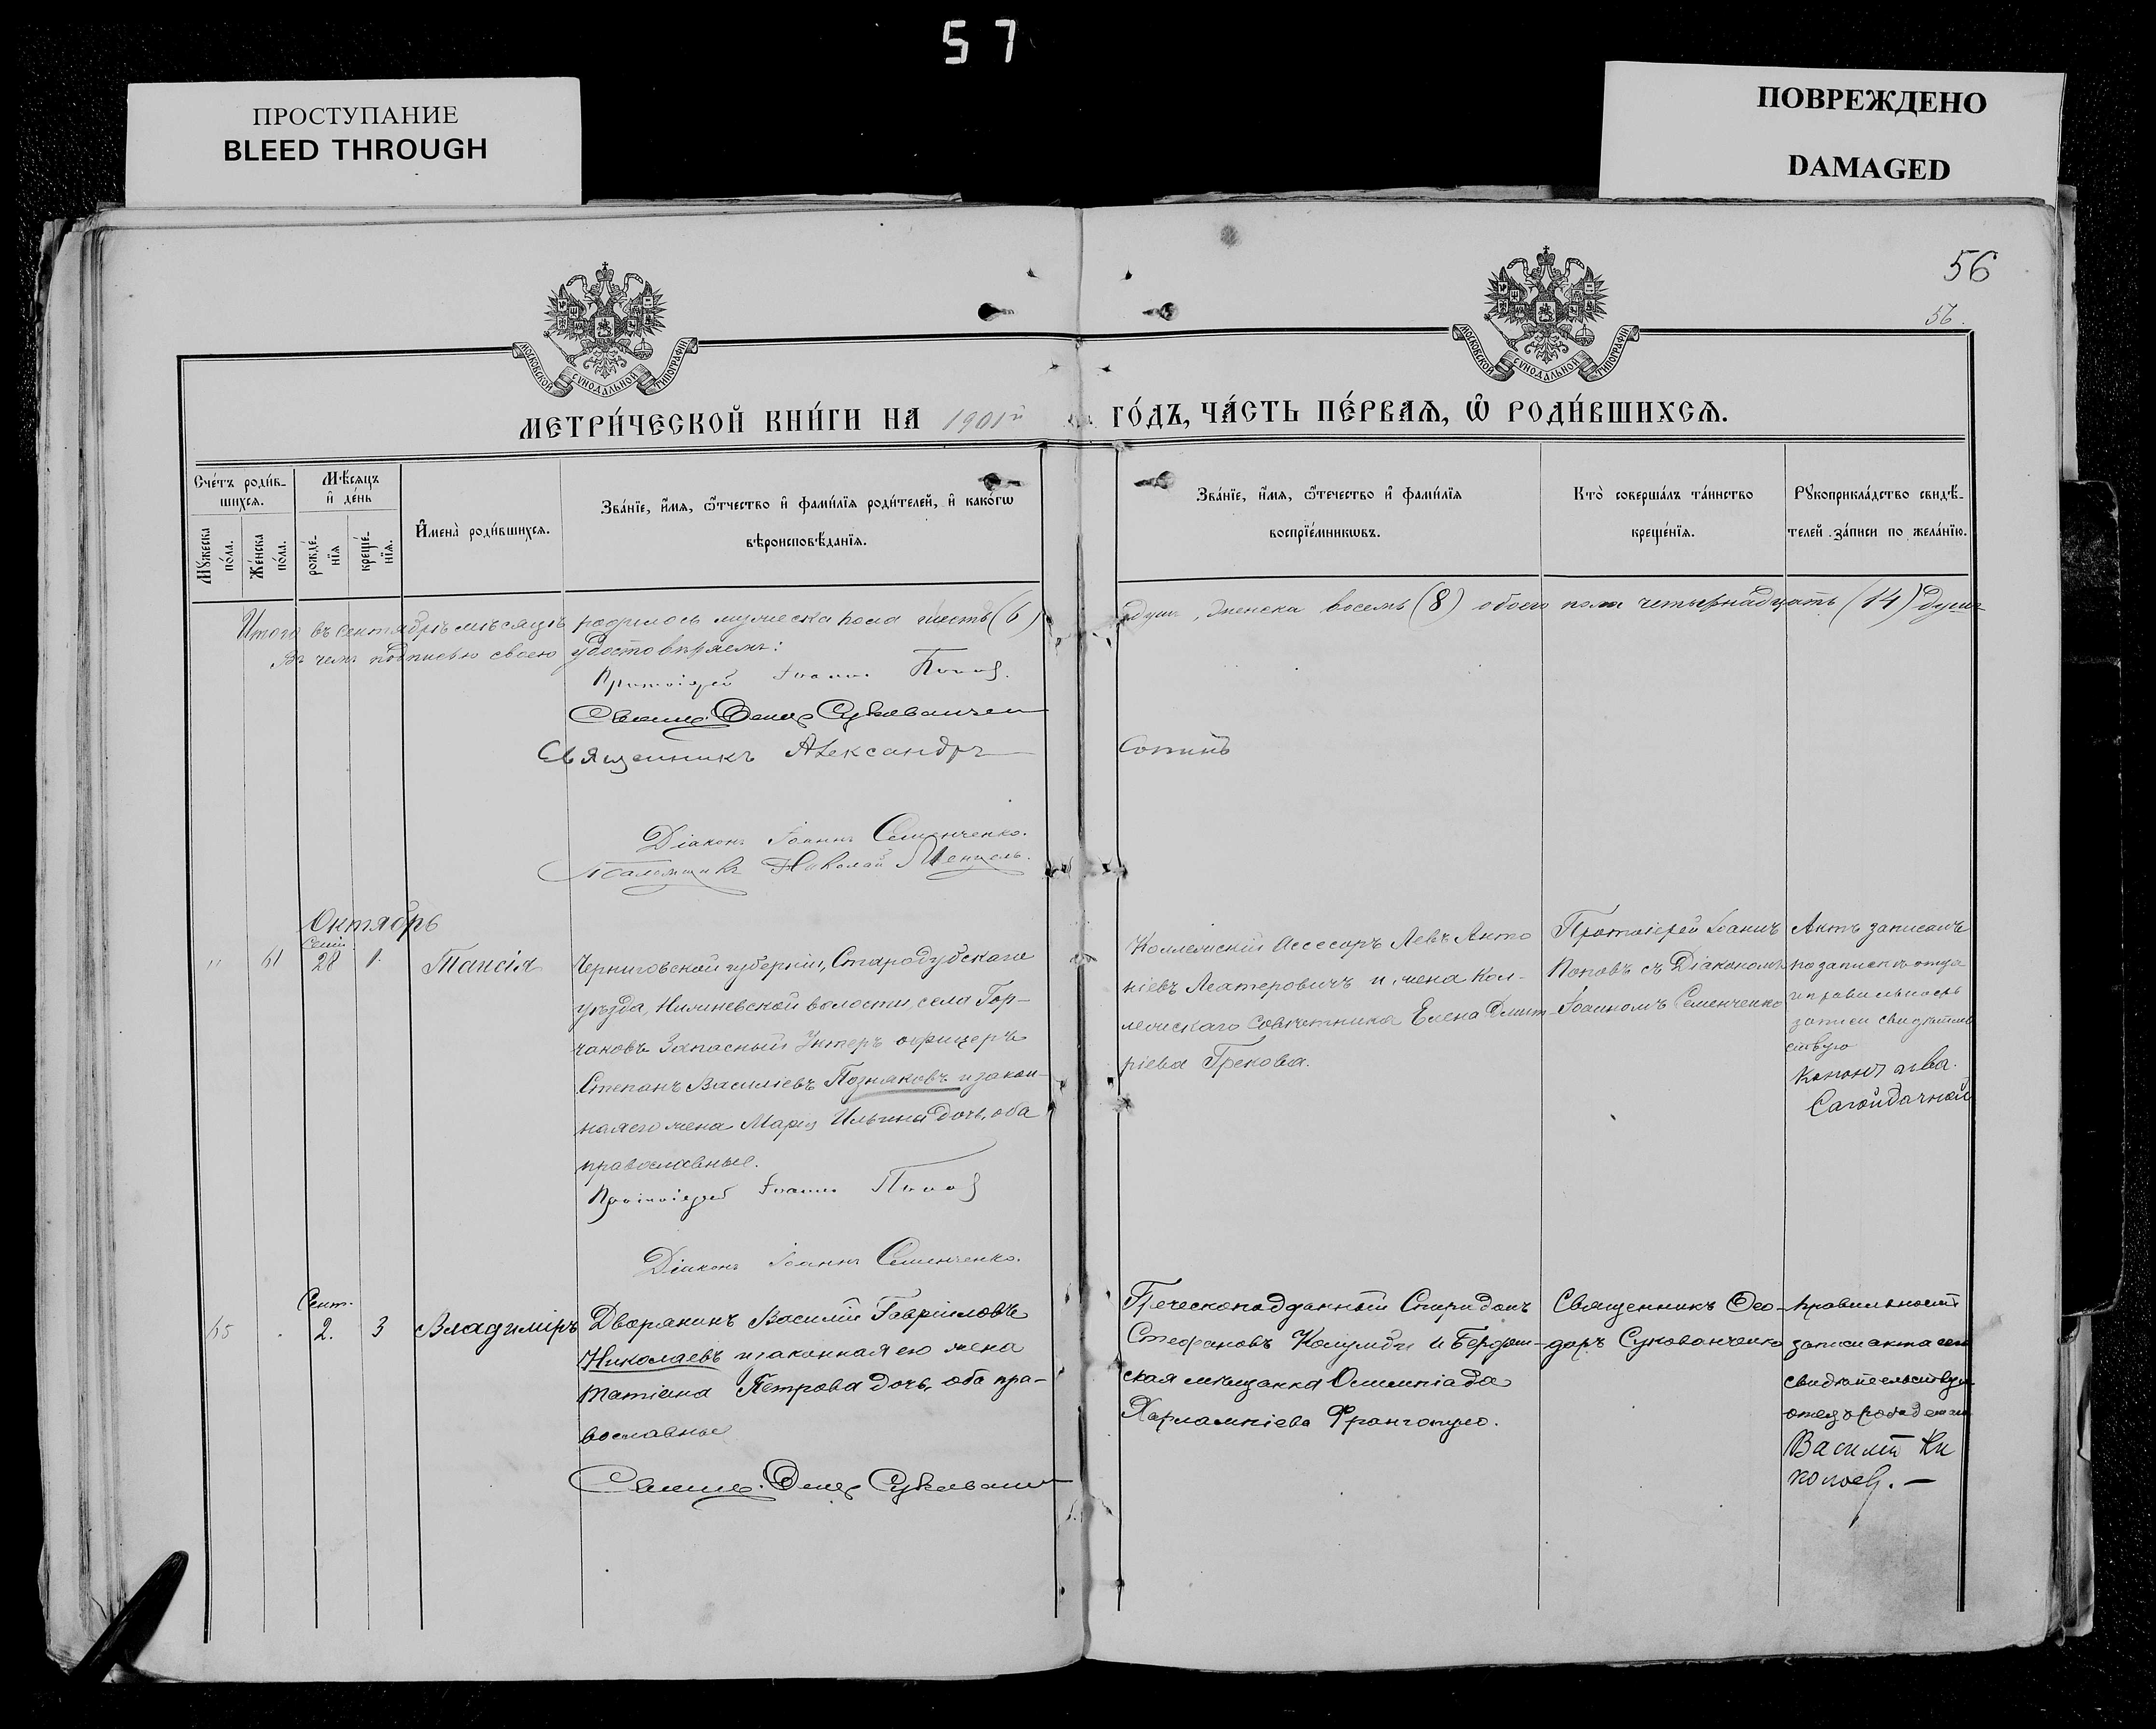 57
ПРОСТУПАНИЕ
BLEED THROUGH
ПОВРЕЖДЕНО
DAMAGED
56
56.
МОСКОВСКОЙ СѴНОДАЛЬНОЙ ТИПОГРАФІИ
МОСКОВСКОЙ СѴНОДАЛЬНОЙ ТИПОГРАФІИ
МЕТРИ́ЧЕСКОЙ КНИ́ГИ НА 1901й ГО́ДЪ, ЧА́СТЬ ПЕ́РВАѦ, Ѽ РОДИ́ВШИХСѦ.
Сче́тъ роди́в-
шихсѧ.
Мꙋжеска по́ла.
Же́нска по́ла.
Мѣ́сѧцъ
и҆ де́нь
рожде́-
нїѧ
креще́-
нїѧ.
И҆мена̀ роди́вшихсѧ.
Зва́нїе, и҆́мѧ, ѻ҆́тчество и҆ фами́лїѧ роди́телей, и҆ како́гѡ
вѣроисповѣ́данїѧ.
Зва́нїе, и҆́мѧ, ѻ҆те́чество и҆ фами́лїѧ
воспрїе́мникѡвъ.
Кто̀ соверша́лъ та́инство
креще́нїѧ.
Рꙋкоприкла́дство свидѣ́-
телей за́писи по жела́нїю.
Итого въ сентябрѣ мѣсяцѣ родилось мужеска пола шесть (6) душъ, женска восемь (8) обоего пола четырнадцать (14) душъ
Въ чемъ подписью своею удостовѣряемъ:
Протоіерей Іоаннъ Поповъ.
Священ. Ѳеод. Сукованченко
Священникъ Александръ Сотинъ
Діаконъ Іоаннъ Семенченко.
Псаломщикъ Николай
Октябрь
" 61
Сент.
28 1.
Таисія
Черниговской губерніи, Стародубскаго
уѣзда, волости, села Гор-
чаковъ Запасный Унтеръ офицеръ
Степанъ Василіевъ Позняковъ и закон-
ная его жена Марія Ильина дочь, оба
православные.
Протоіерей Іоаннъ Поповъ
Діаконъ Іоаннъ Семенченко.
Коллежскій Ассесоръ Левъ Анто
ніевъ и жена Кол-
лежскаго Совѣтника Елена Дмит-
ріева Грекова.
Протоіерей Іоаннъ
Поповъ съ Діакономъ
Іоанномъ Семенченко
Актъ записанъ
по записи отца
и правильность
записи свидѣтель
ствую
Сагойдачной
65 .
Сент.
2. 3
Владиміръ
Дворянинъ Василій Гавріиловъ
Николаевъ и законная его жена
Татіана Петрова дочь, оба пра-
вославные
Священ. Ѳеод. Сукован
Греческоподданный Спиридонъ
Стефановъ и Бердян-
ская мѣщанка Олимпіада
Харлампіева Франгопуло.
Священникъ Ѳео-
доръ Сукованченко
Правильность
записи акта сего
свидѣтельствую
отецъ
Василій Ни
колаевъ. —